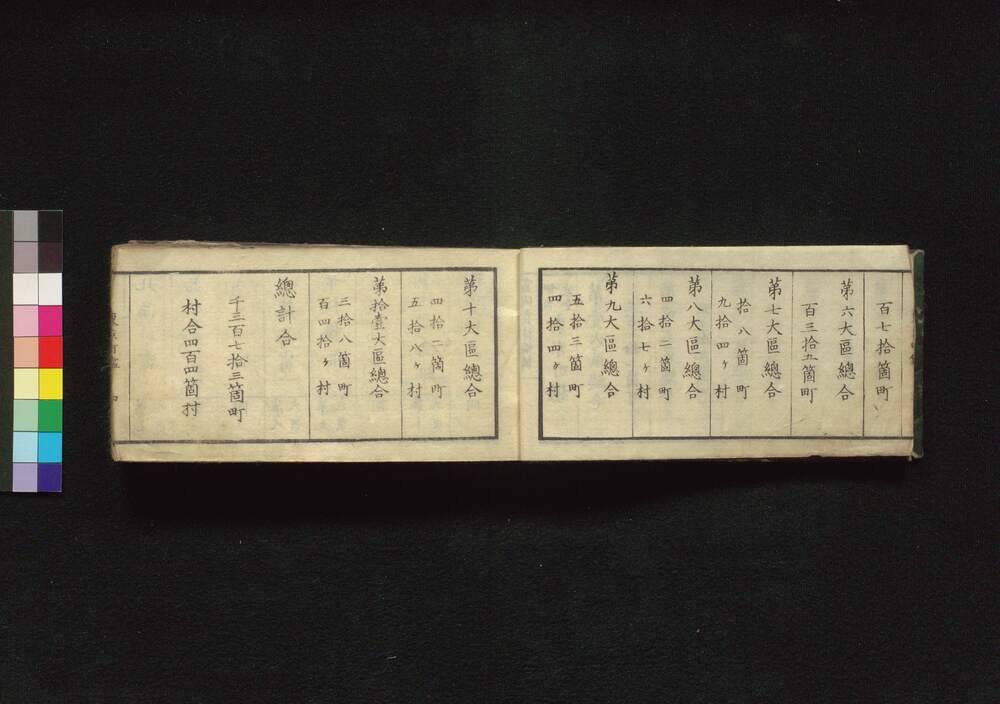 百七拾箇町
第六大區總合
百三拾五箇町
第七大區總合
拾八箇町
九拾四ヶ村
第八大區總合
四拾二箇町
六拾七ヶ村
第九大區總合
五拾三箇町
四拾四ヶ村
第十大區總合
四拾二箇町
五拾八ヶ村
第拾壹大區總合
三拾八箇町
百四拾ヶ村
總計合
千三百七拾三箇町
村合四百四箇村